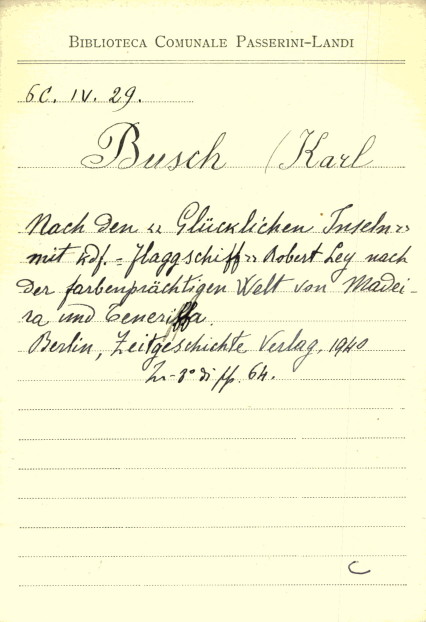 BIBLIOTECA COMUNALE PASSERINI-LANDI
6C. IV. 29.
Busch (Karl
Nach den « Glücklichen Inseln »
mit Kdf. = Flaggschiff » Robert Ley nach
der farbenprächtigen Welt von Madei-
ra und Teneriffa.
Berlin, Zeitgeschichte Verlag, 1940
In-8° di pp. 64.
C